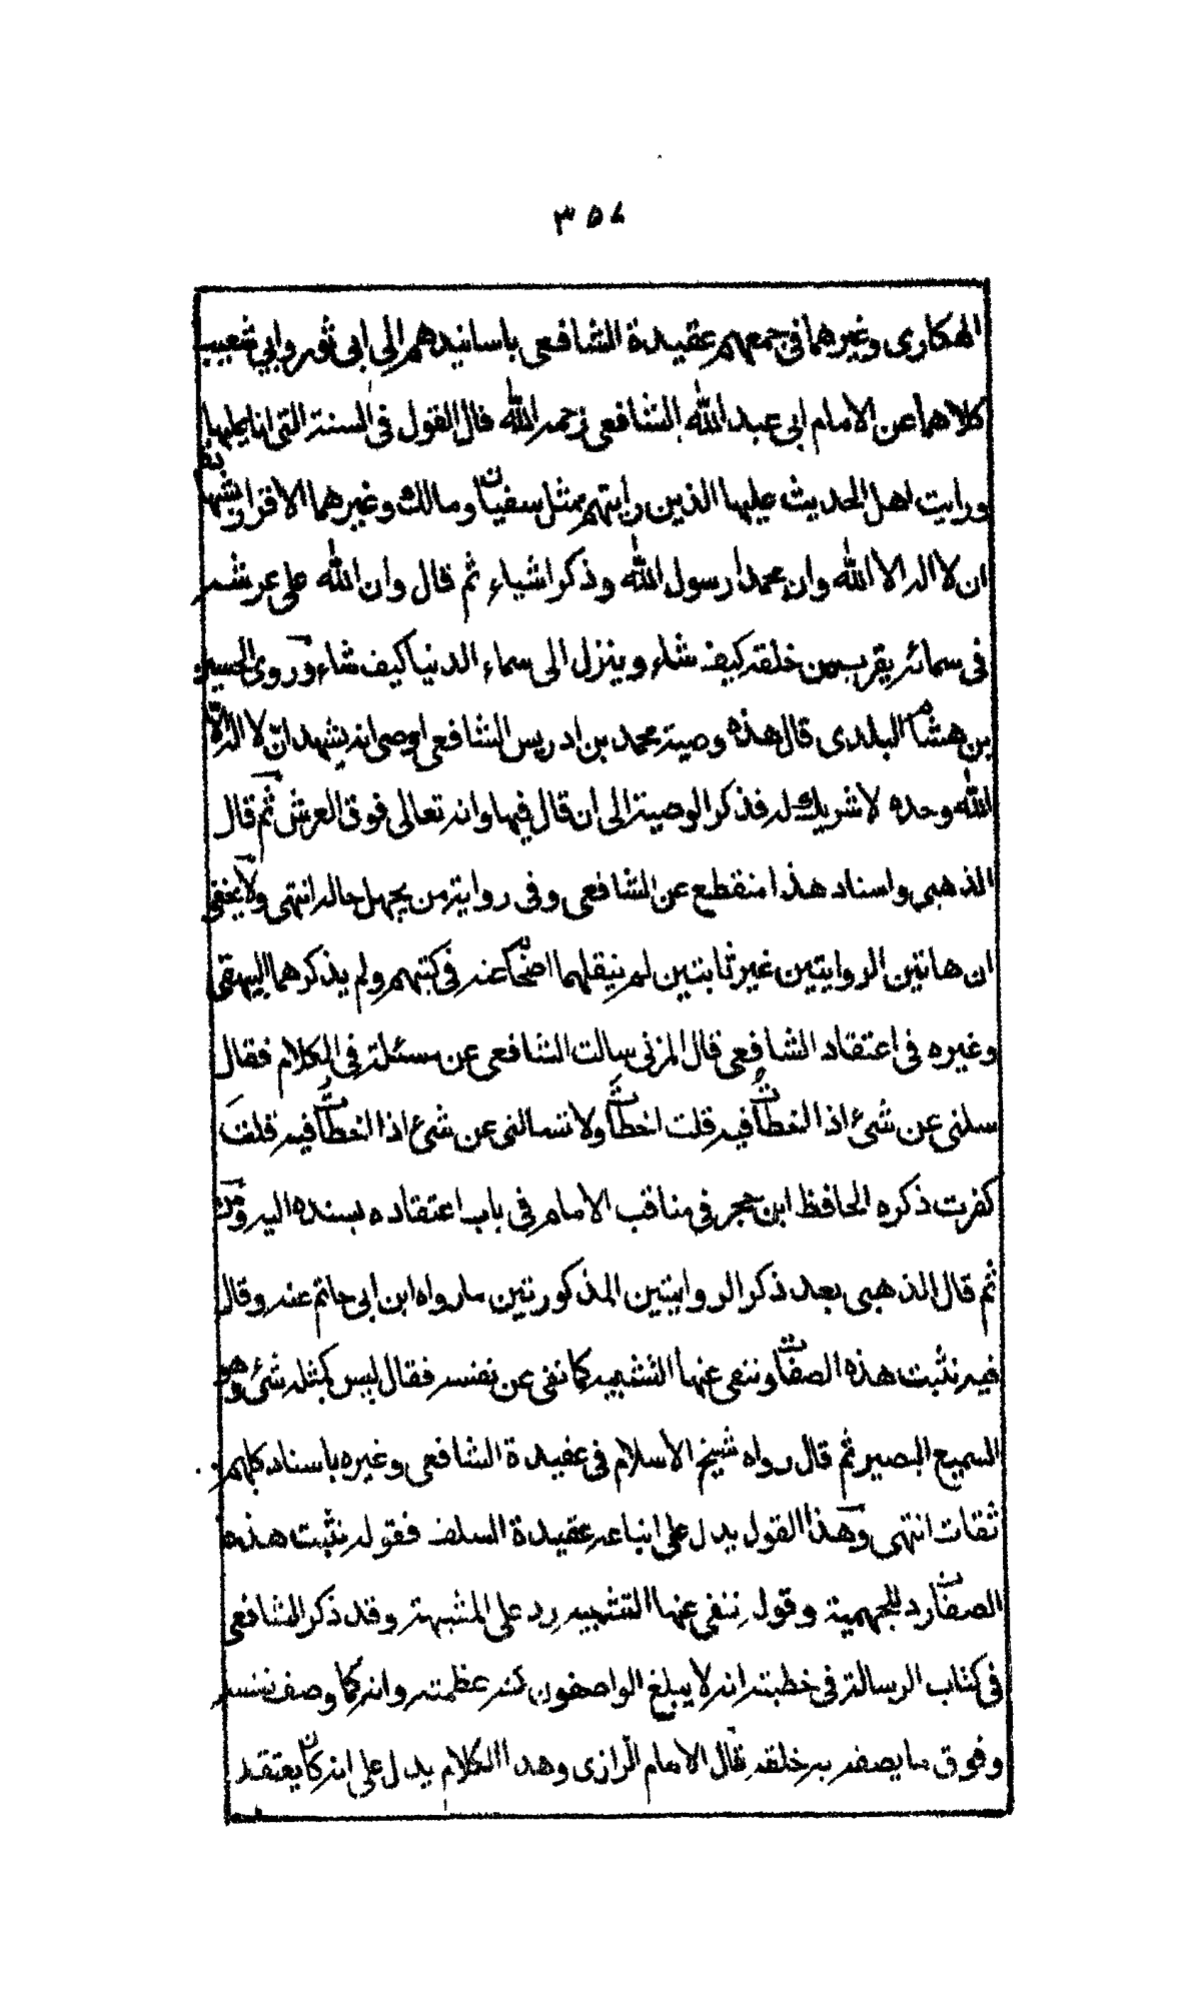 ٣٥٨
الهكارى وغيرهما فى جمعهم عقيدة الشافعى باسانيدهم الى ابى ثور وابى شعيب
كلاهما عن الامام ابى عبد الله الشافعى رحمه الله قال القول فى السنة التى انا عليها
ورايت اهل الحديث عليها الذين رايتهم مثل سفيان ومالك وغيرهما الاقرار بشهادة
ان لا اله الا الله وان محمدا رسول الله وذكر اشياء ثم قال وان الله على عرشه
فى سمائه يقرب من خلقه كيف شاء وينزل الى سماء الدنيا كيف شاء وروى الحسين
بن هشام البلدى قال هذه وصية محمد بن ادريس الشافعى اوصى انه يشهد ان لا اله الا
الله وحده لا شريك له فذكر الوصية الى ان قال فيها وانه تعالى فوق العرش ثم قال
الذهبى واسناد هذا منقطع عن الشافعى وفى رواية من يجهل حاله انتهى ولا يخفى
ان هاتين الروايتين غير ثابتين لم ينقلهما اصحابنا عنه فى كتبهم ولم يذكرهما البيهقى
وغيره فى اعتقاد الشافعى قال المزنى سالت الشافعى عن مسئلة فى الكلام فقال
سلنى عن شئ اذا اخطات فيه قلت اخطات ولا تسالنى عن شئ اذا اخطات فيه قلت
كفرت ذكره الحافظ ابن حجر فى مناقب الامام فى باب اعتقاده بسنده اليه ومن
ثم قال الذهبى بعد ذكر الروايتين المذكورتين ما رواه ابن ابى حاتم عنه وقال
فيه نثبت هذه الصفات وننفى عنها التشبيه كما نفى عن نفسه فقال ليس كمثله شئ وهو
السميع البصير ثم قال رواه شيخ الاسلام فى عقيدة الشافعى وغيره باسناد كلهم
ثقات انتهى وهذا القول يدل على اتباعه عقيدة السلف فقوله نثبت هذه
الصفات رد للجهمية وقوله ننفى عنها التشبيه رد على المشبهة وقد ذكر الشافعى
فى كتاب الرسالة فى خطبته انه لا يبلغ الواصفون كنه عظمته وانه كما وصف نفسه
وفوق ما يصفه به خلقه قال الامام الرازى وهذا الكلام يدل على انه كان يعتقد